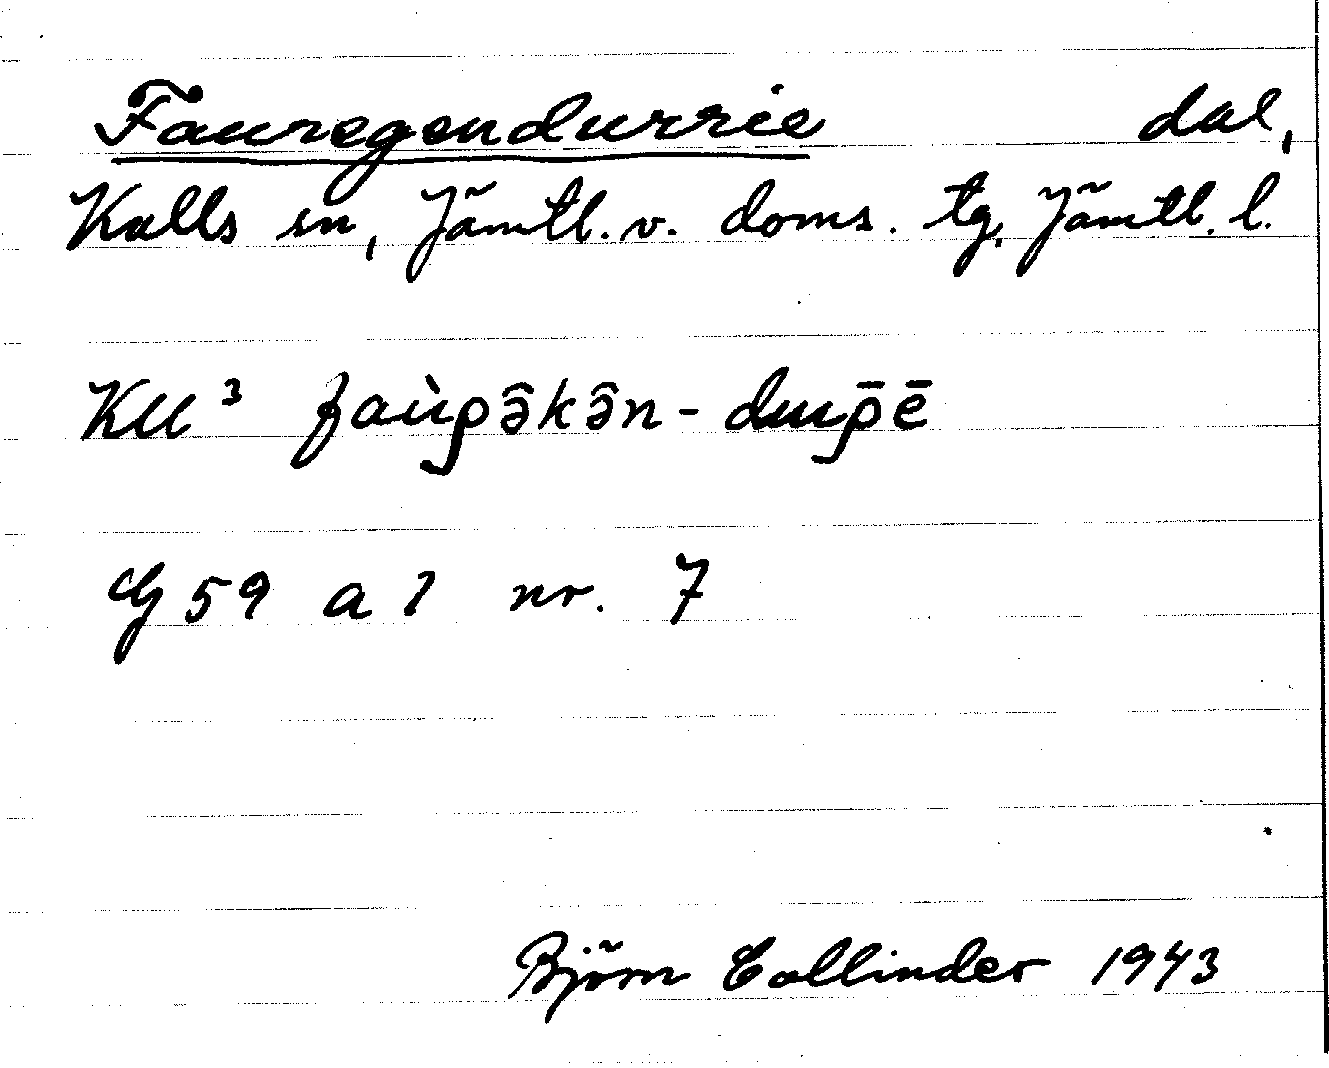 Fauregendurrie dal,
Kalls sn, Jämtl. v. doms. tg, Jämtl. l.
KU³
G 59 a 1 nr. 7
Björn Collinder 1943